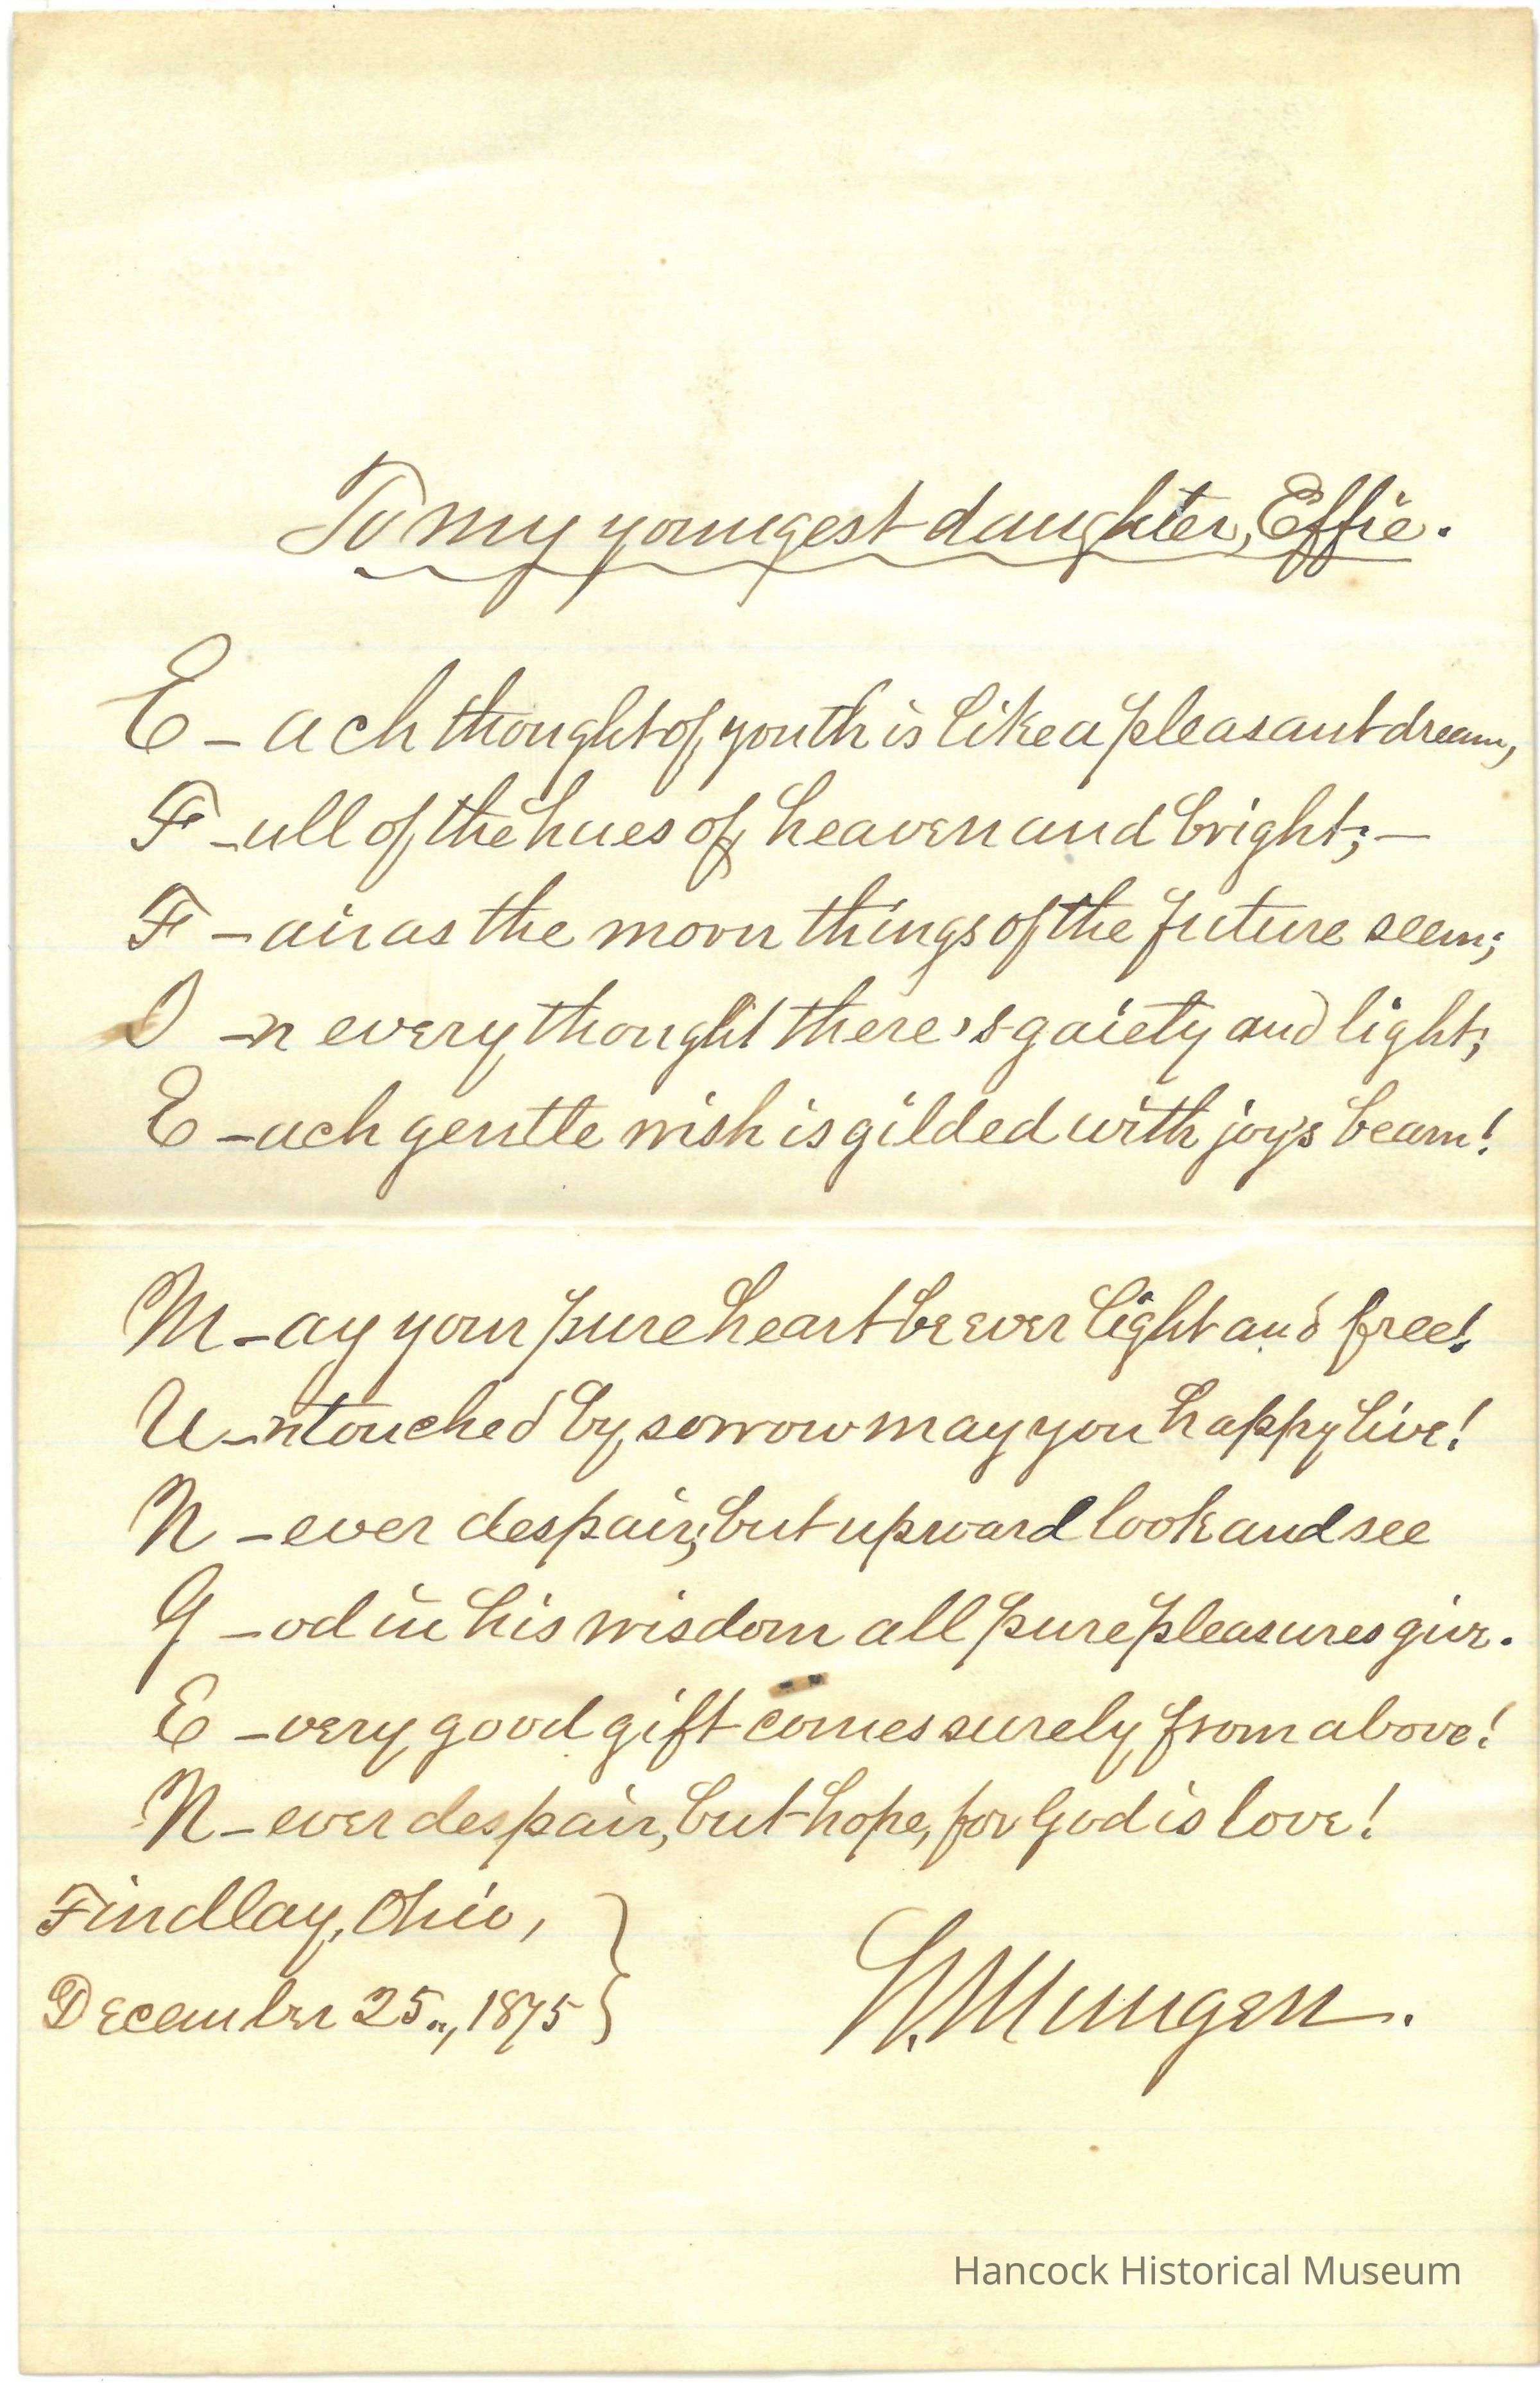 To my youngest daughter, Effie.
E - ach thought of youth is like a pleasant dream,
F - ull of the hues of heaven and bright; —
F - air as the moon things of the future seem;
I - n every thought there's gaiety and light;
E - ach gentle wish is gilded with joy's beam!
M - ay your pure heart be ever light and free!
U - ntouched by sorrow may you happy live!
N - ever despair; but upward look and see
G - od in his wisdom all pure pleasures give.
E - very good gift comes surely from above!
N - ever despair, but hope, for God is love!
Findlay, Ohio,
December 25", 1875
W. Mungen.
Hancock Historical Museum